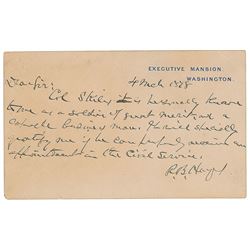 EXECUTIVE MANSION.
WASHINGTON.
4 Mch 1878
Dear Sir:
Col is personally known
to me as a soldier of great merit and a
capable business man. It would specially
gratify me if he can be properly an
appointment in the Civil Service.
R.B. Hayes